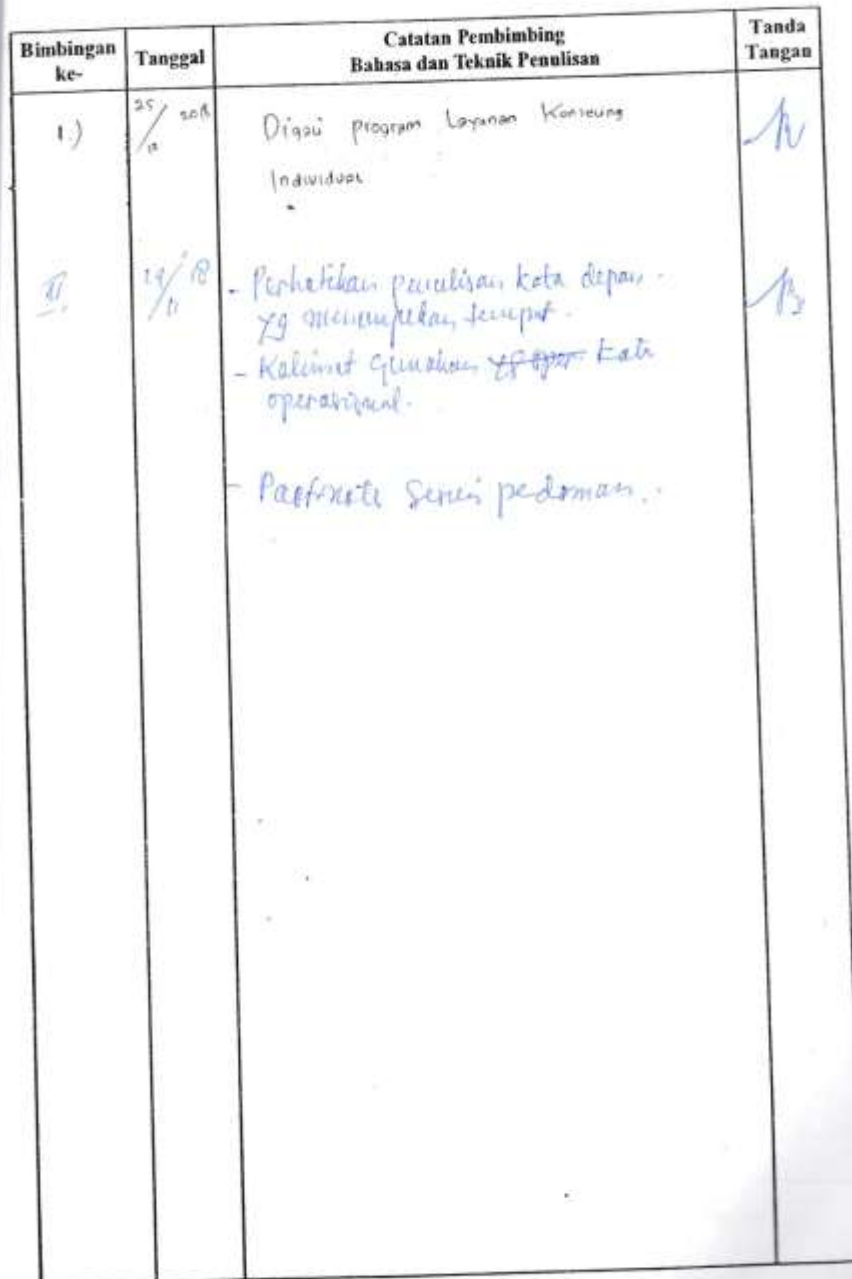 Bimbingan ke-
Tanggal
Catatan Pembimbing
Bahasa dan Teknik Penulisan
Tanda Tangan
1.)
25/ 2018
Digali program Layanan Konseling
Individual
II.
18
- Perhatikan penulisan kata depan
yg menunjukkan tempat.
- Kalimat gunakan kata
operasional.
- Footnote sesuai pedoman.